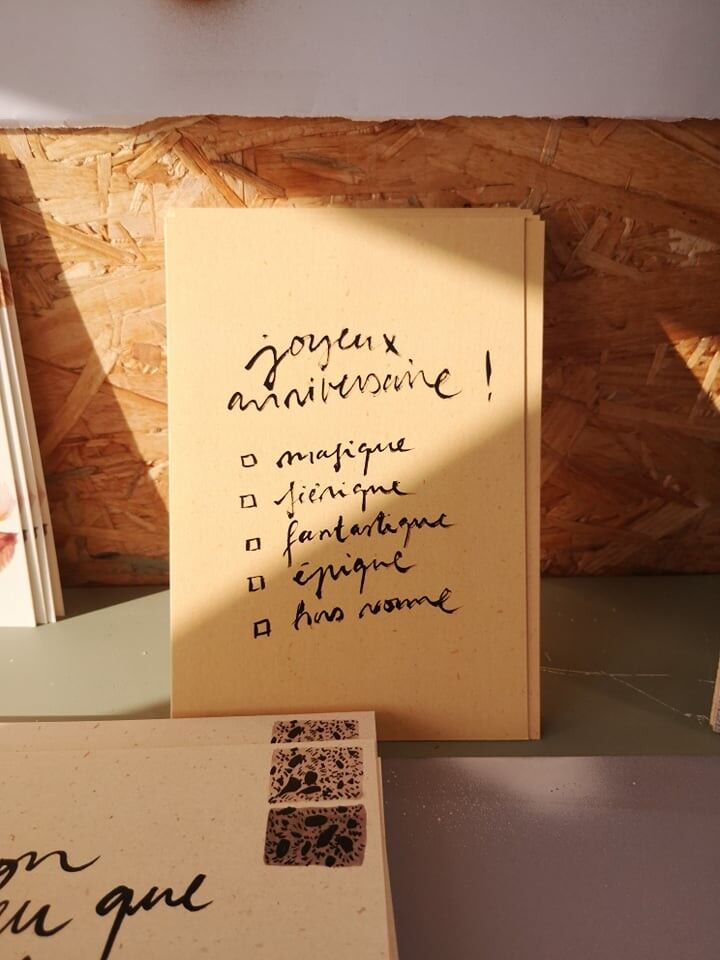 joyeux
anniversaire !
□ magique
□ féérique
□ fantastique
□ épique
□ hors norme
on
eu que